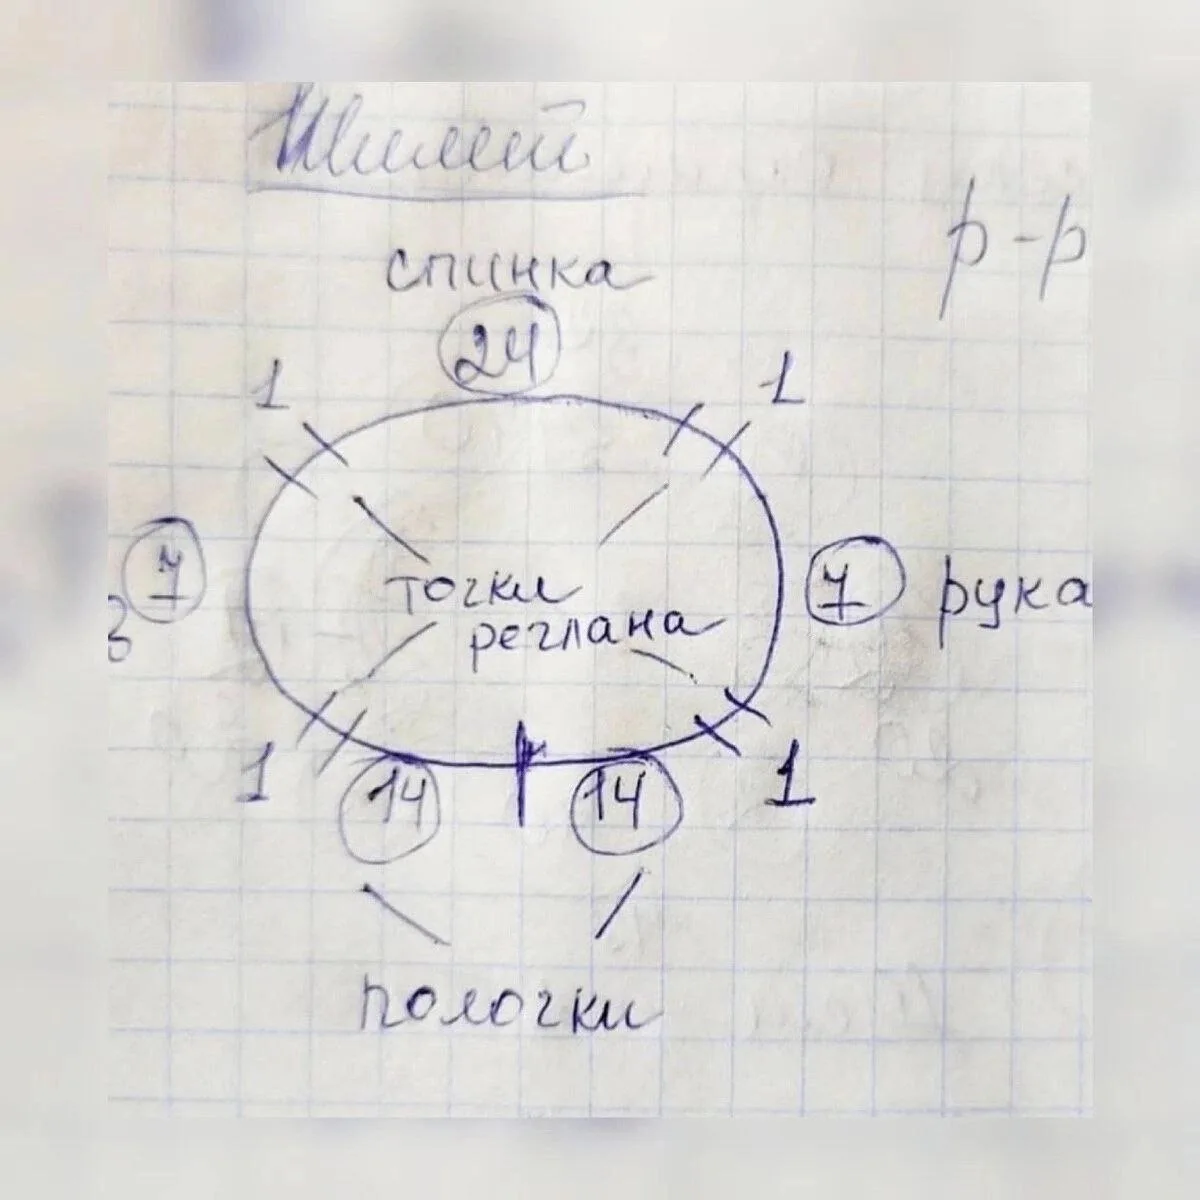 р-р
спинка
24
1 1
7 7 рука
в
точки
реглана
1 1
14 14
полочки